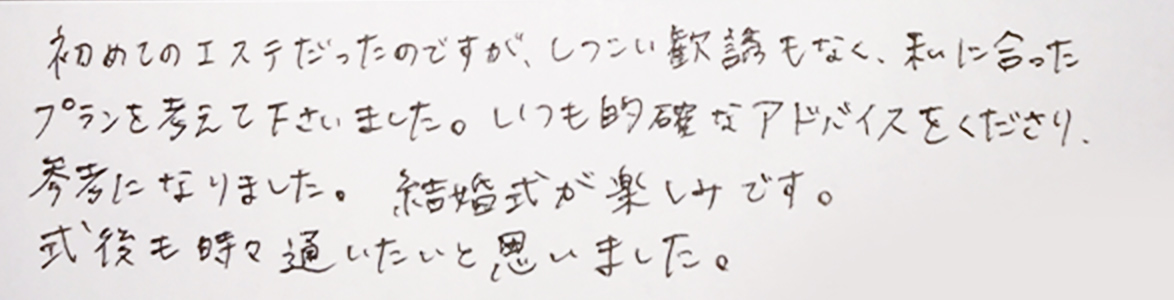 初めてのエステだったのですが、しつこい歓誘もなく、私に合った
プランを考えて下さいました。いつも的確なアドバイスをくださり、
参考になりました。 結婚式が楽しみです。
式後も時々通いたいと思いました。